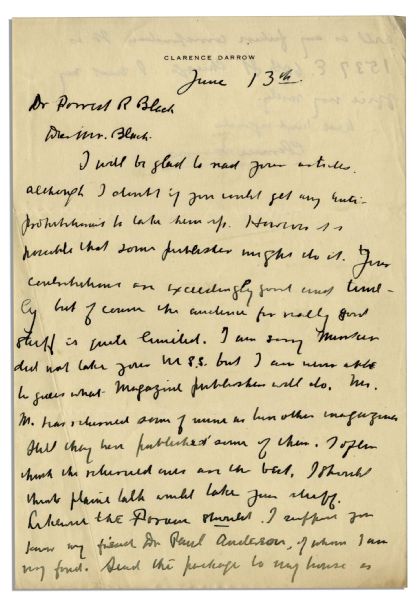 CLARENCE DARROW
June 13th.
Dr Forrest R Black
Dear Mr. Black.
I will be glad to read your articles,
although I doubt if you could get any anti-
prohibitionists to take them up. However it is
possible that some publisher might do it. Your
contributions are exceedingly good and time-
ly but of course the audience for really good
stuff is quite limited. I am sorry Mencken
did not take your M.S.S. but I am never able
to guess what Magazine publishers will do. Mr.
M. has returned some of mine as have other magazines
still they have published some of them. I often
think the returned ones are the best. I should
think plain talk would take your stuff.
Likewise the Forum should. I suppose you
know my friend Dr Paul Anderson, of whom I am
very fond. Send the package to my house as